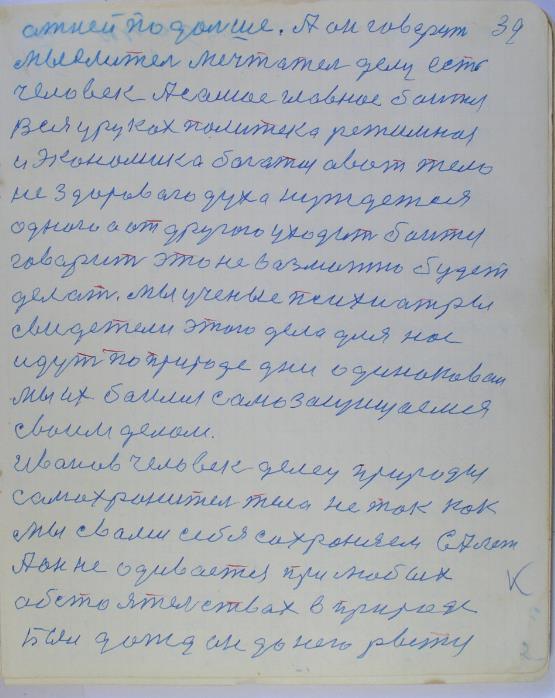 отней подольше. А он говорит 39
мыслител мечтател делу есть
человек А самое главное боится
вся у руках политека режимная
и экономика богатой а вот тело
не здорового духа нуждается
одного а от другого уходит боится
говорит это не возможно будет
делат. мы ученые психиатры
свидетели этого дела для нас
идут по природе дни одинаковаи
мы их боимся самозащищаемся
своим делом.
Иванов человек делец природы
самохранител тела не так как
мы свами себя сохраняем
А он не одивается при любых
обстоятелствах в природе
Был дожд он до него рвется